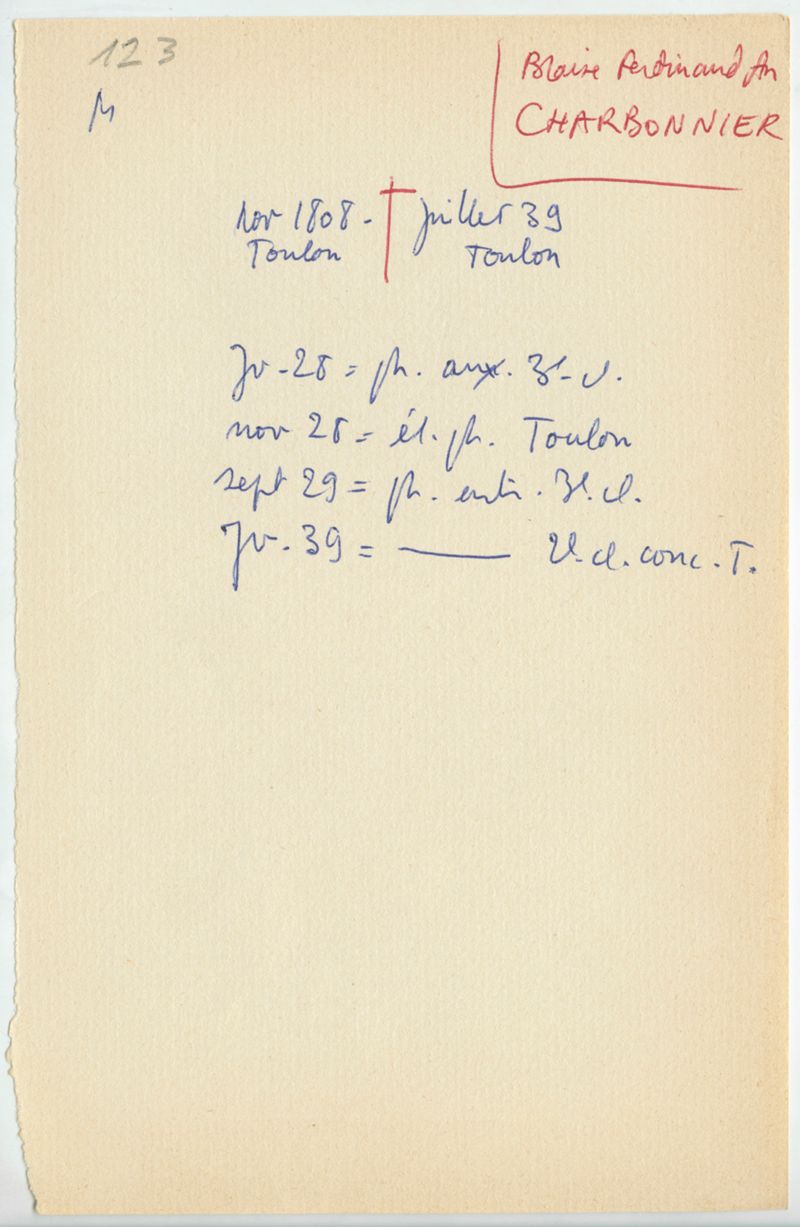 123
M
Blaise Ferdinand fn
CHARBONNIER
nov 1808 - † juillet 39
Toulon Toulon
Jv - 28 = ph. aux. 3e-cl.
nov 28 = él. ph. Toulon
sept 29 = ph. entr. 3e. cl.
Jv. 39 = —— 2e. cl. conc. T.